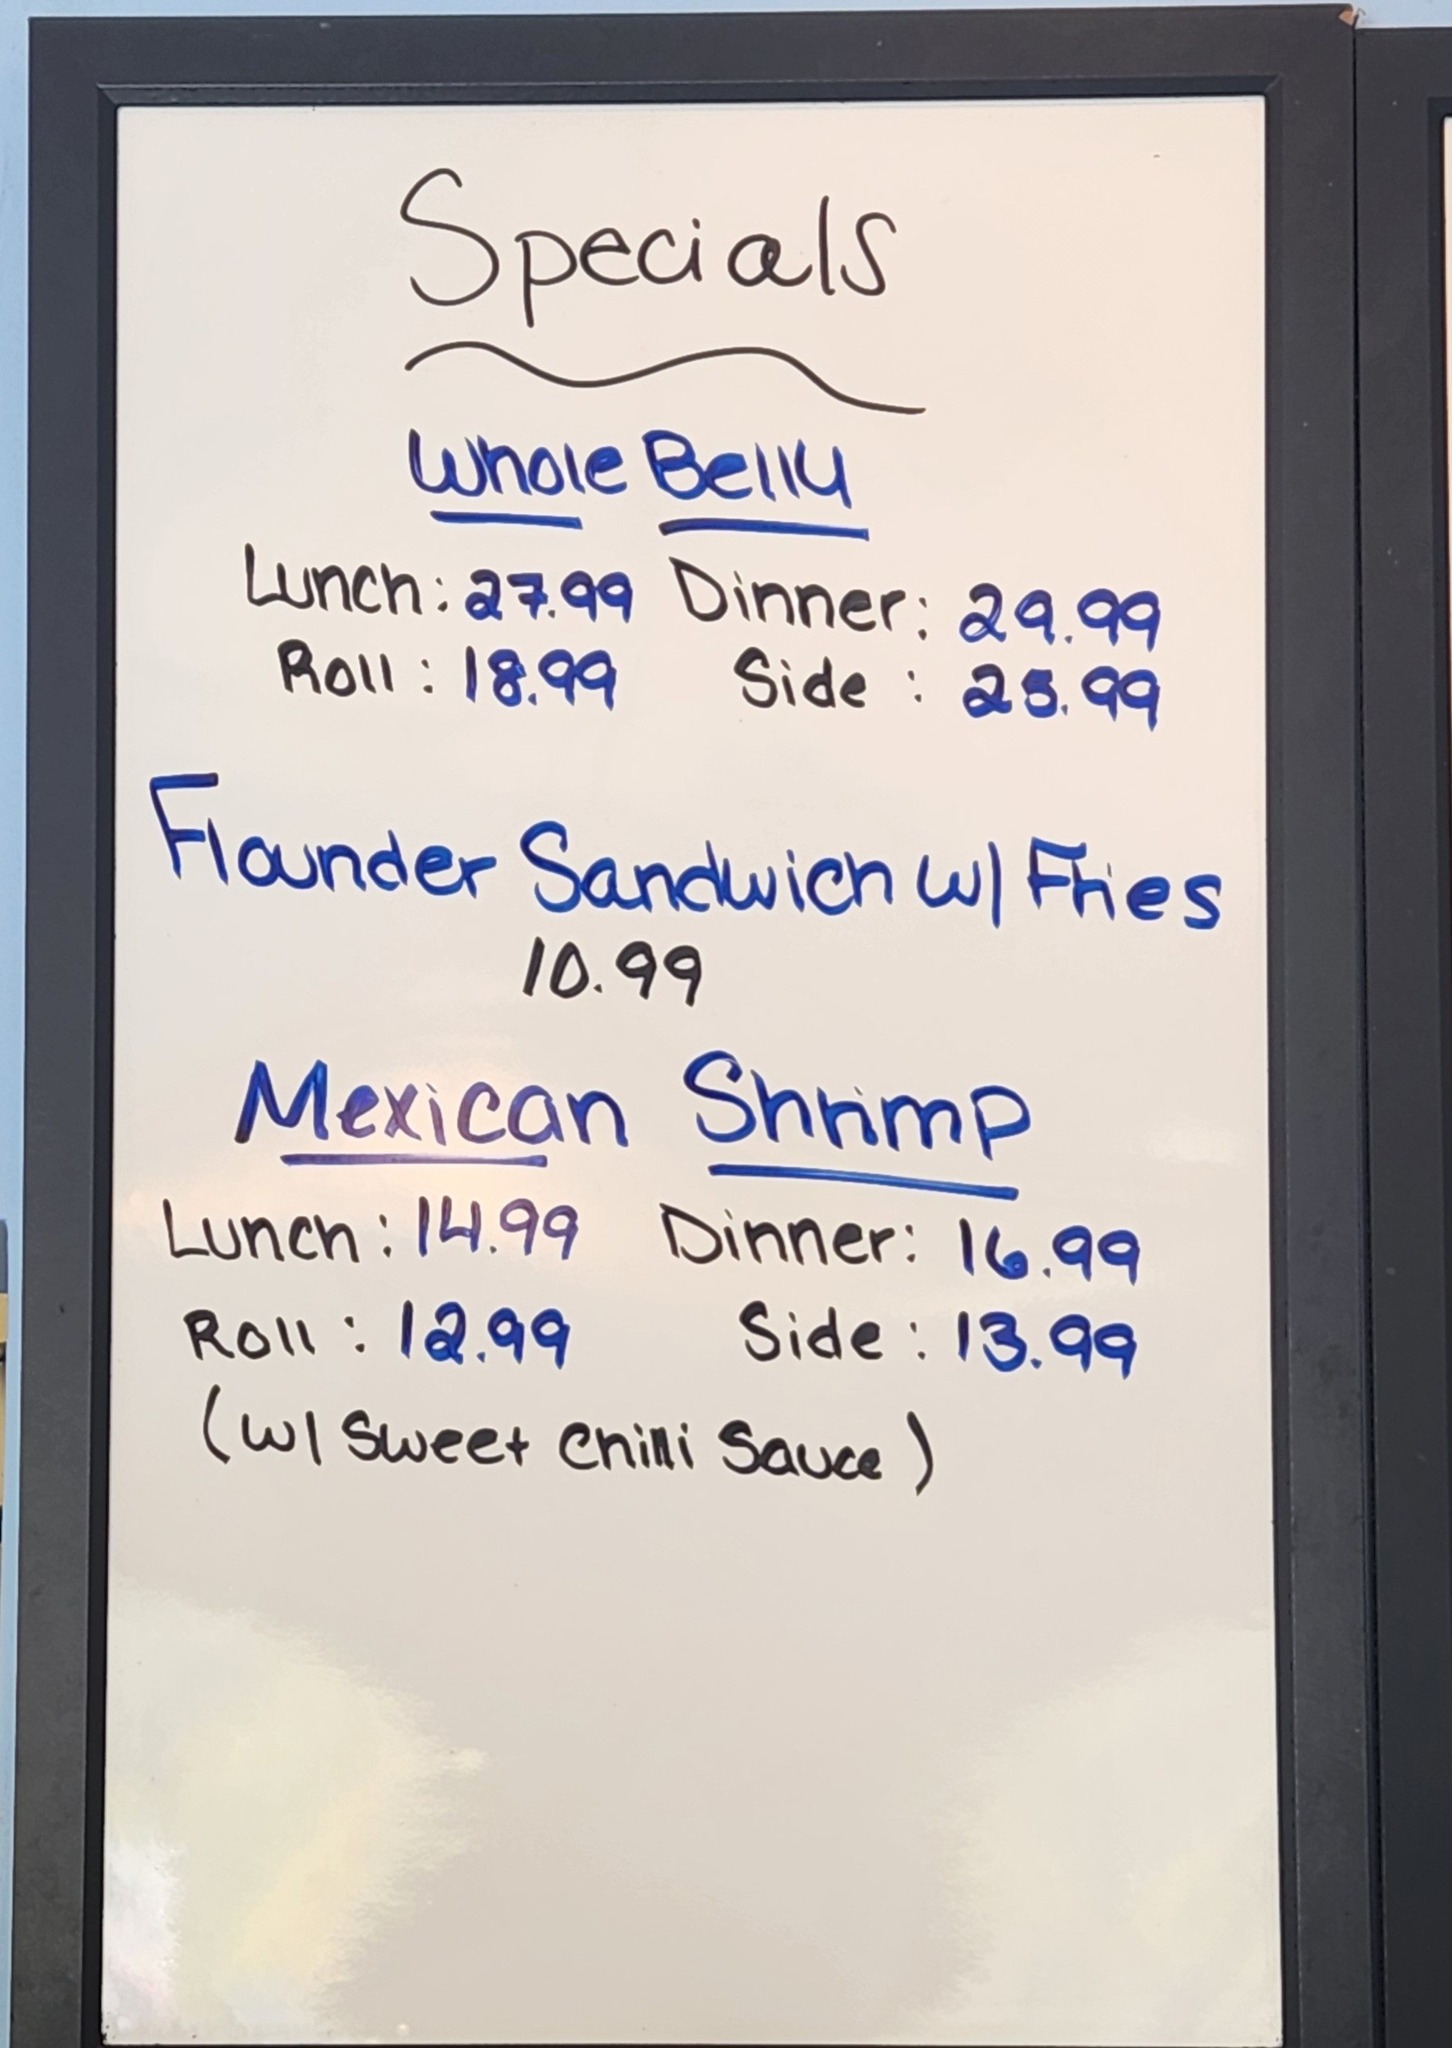 Specials
Whole Belly
Lunch: 27.99 Dinner: 29.99
Roll: 18.99 Side: 25.99
Flounder Sandwich w/ Fries
10.99
Mexican Shrimp
Lunch: 14.99 Dinner: 16.99
Roll: 12.99 Side: 13.99
(w/ Sweet Chilli Sauce)